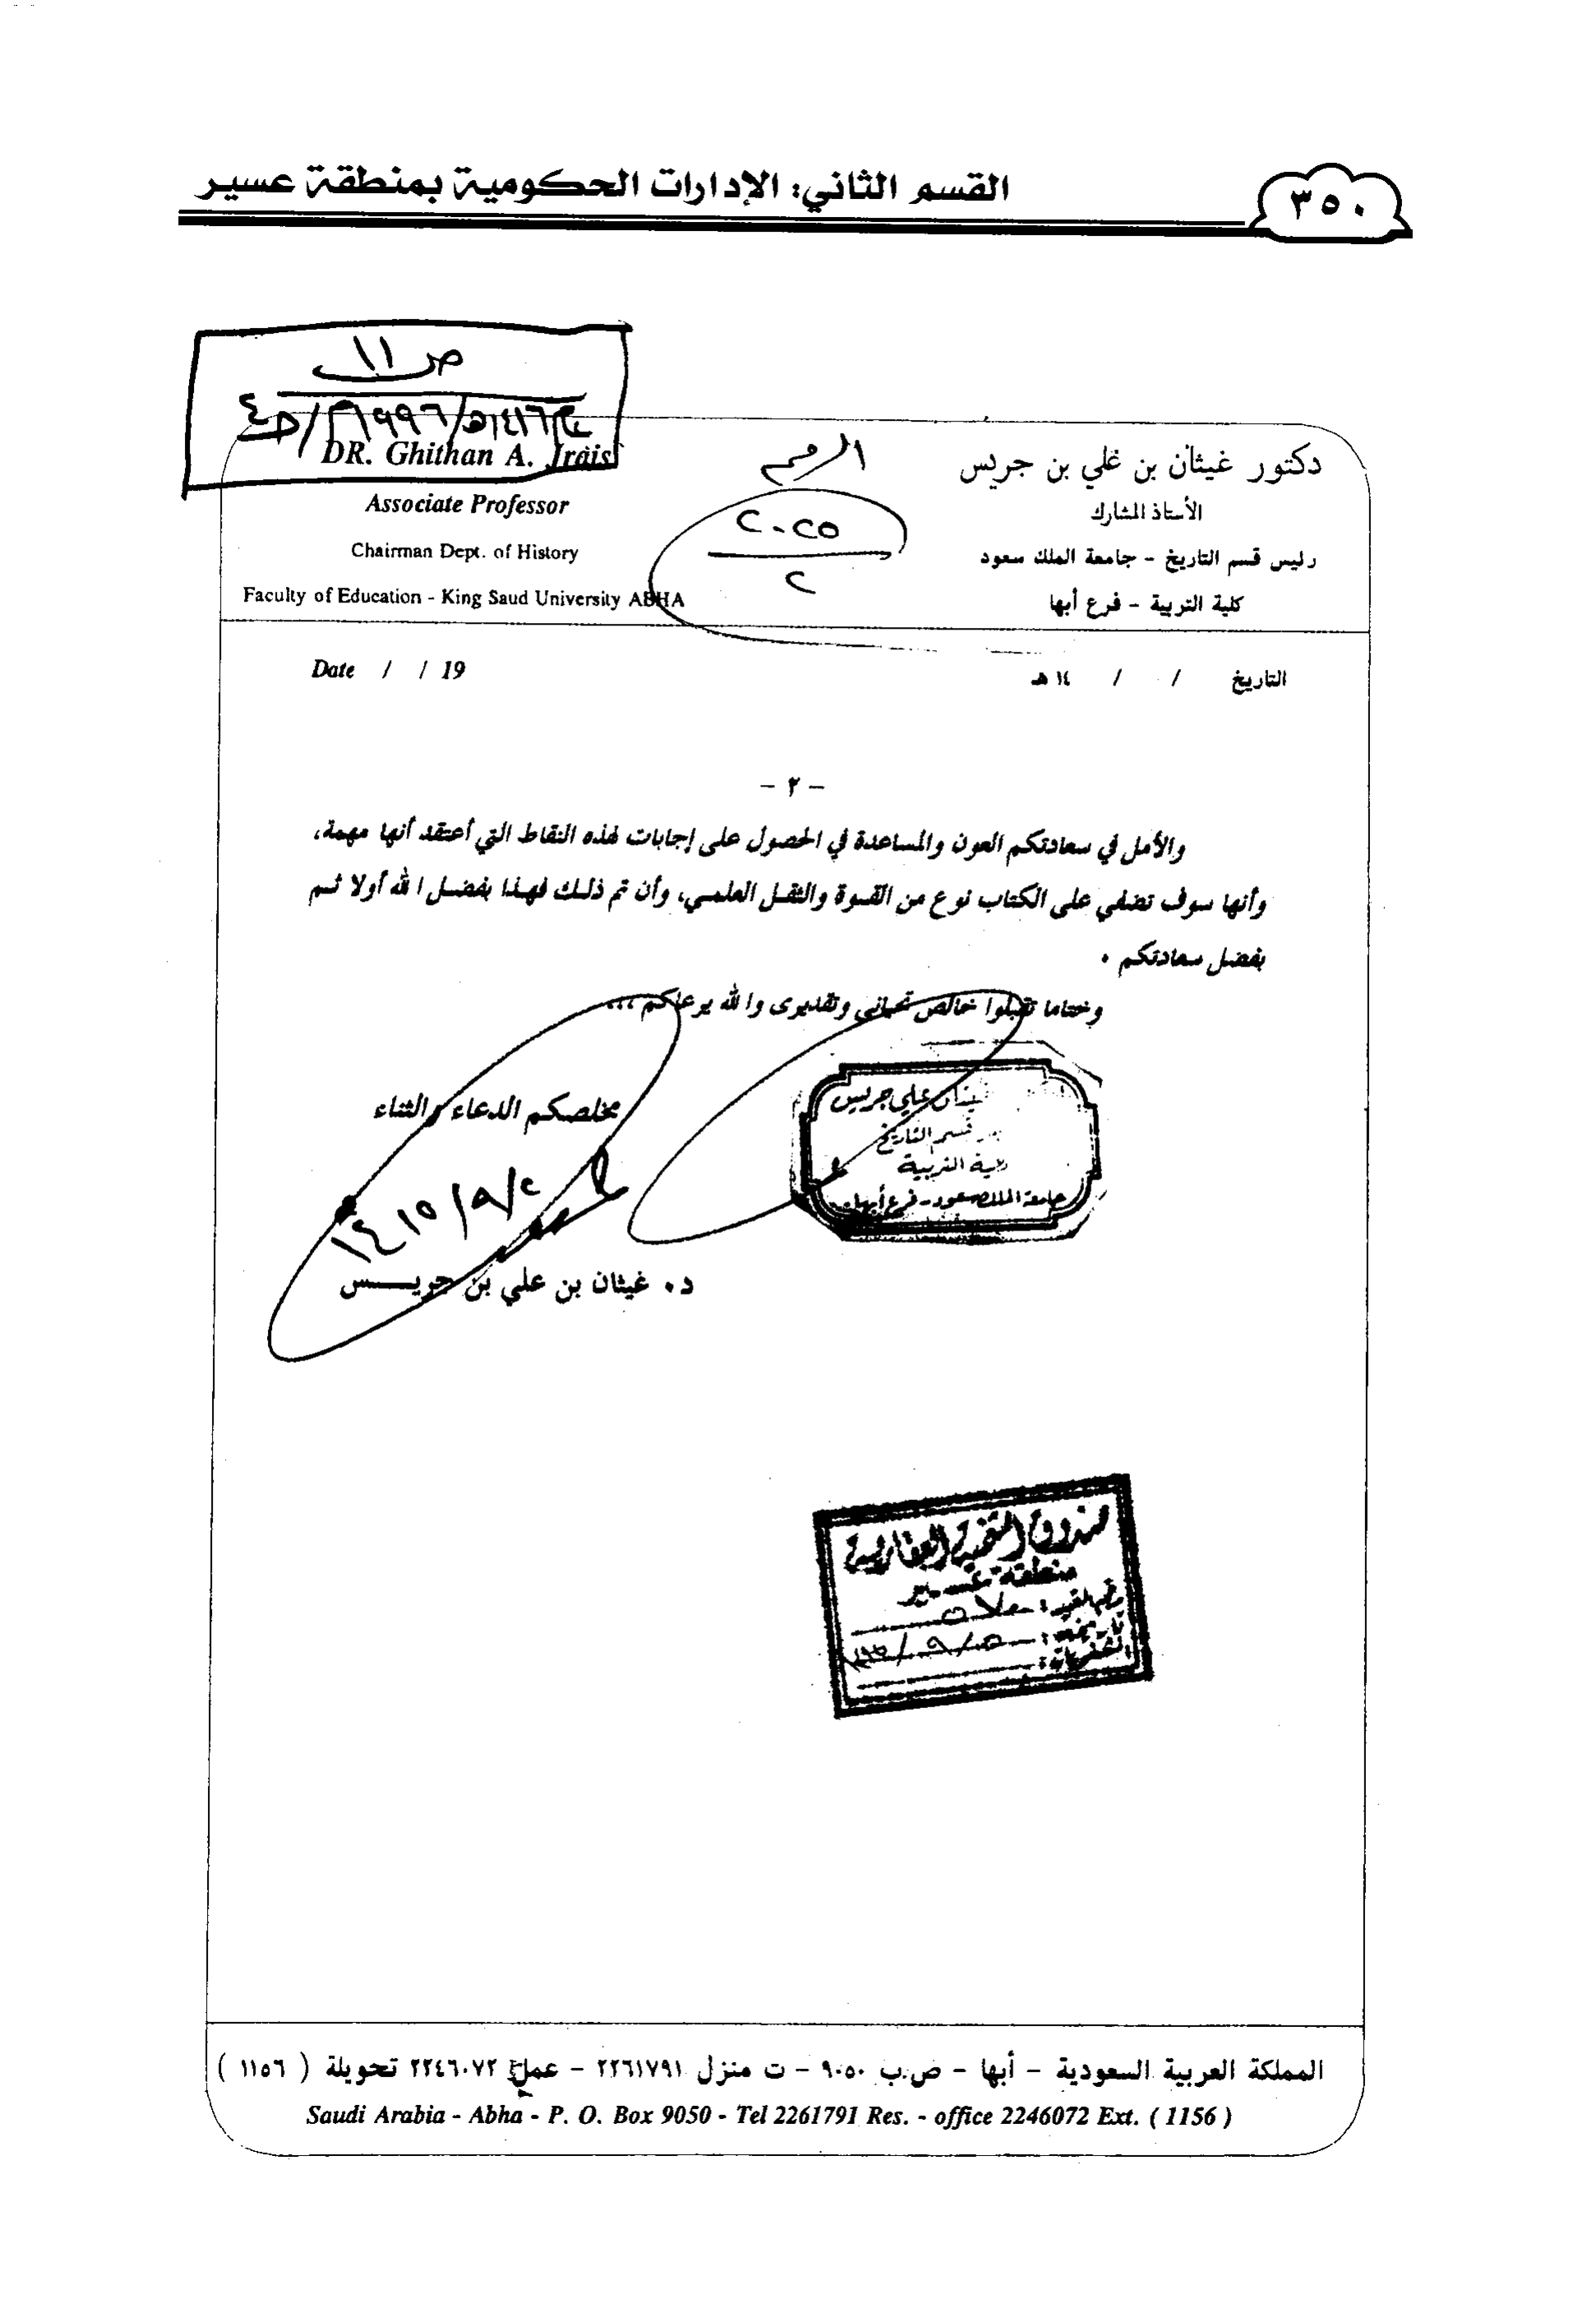 القسم الثاني: الإدارات الحكومية بمنطقة عسير
٣٥٠
ص ١١
١٤١٦هـ/١٩٩٦م
DR. Ghithan A. Jrais
Associate Professor
Chairman Dept. of History
Faculty of Education - King Saud University ABHA
الرقم
٢٠٢٥
٢
دكتور غيثان بن علي بن جريس
الأستاذ المشارك
رئيس قسم التاريخ - جامعة الملك سعود
كلية التربية - فرع أبها
Date / / 19
التاريخ / / ١٤ هـ
- ٢ -
والأمل في سعادتكم العون والمساعدة في الحصول على إجابات لهذه النقاط التي أعتقد أنها مهمة،
وأنها سوف تضفي على الكتاب نوع من القوة والثقل العلمي، وأن تم ذلك فهذا بفضل الله أولا ثم
بفضل سعادتكم ٠
وختاما تقبلوا خالص تحياتي وتقديرى والله يرعاكم ،،،
مخلصكم الدعاء والثناء
١٤١٥/٩/٢
د. غيثان بن علي بن جريس
غيثان علي جريس
قسم التاريخ
كلية التربية
جامعة الملك سعود - فرع أبها
صندوق التنمية العقارية
منطقة عسير
رقم القيد:
تاريخه:
المملكة العربية السعودية - أبها - ص.ب ٩٠٥٠ - ت منزل ٢٢٦١٧٩١ - عمل ٢٢٤٦٠٧٢ تحويلة ( ١١٥٦ )
Saudi Arabia - Abha - P. O. Box 9050 - Tel 2261791 Res. - office 2246072 Ext. ( 1156 )